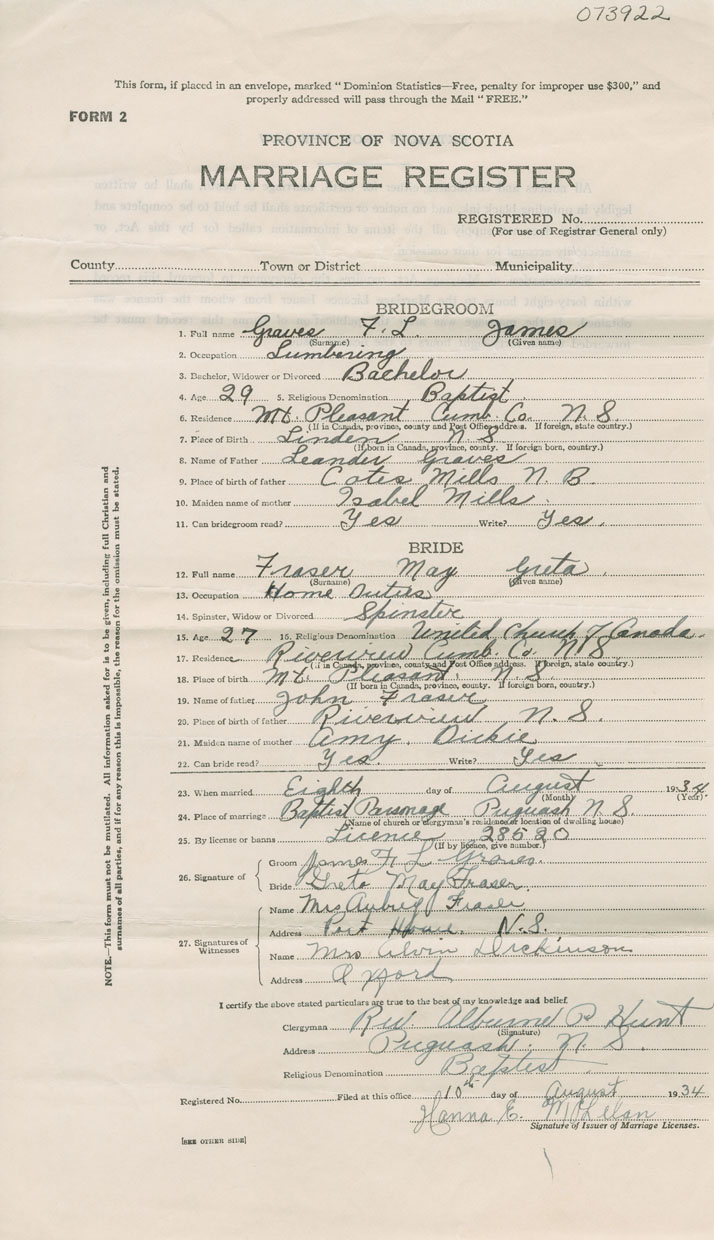 073922
This form, if placed in an envelope, marked "Dominion Statistics—Free, penalty for improper use $300," and
properly addressed will pass through the Mail "FREE."
FORM 2
PROVINCE OF NOVA SCOTIA
MARRIAGE REGISTER
REGISTERED No.
(For use of Registrar General only)
County Town or District Municipality
BRIDEGROOM
1. Full name Graves F. L. James
(Surname) (Given name)
2. Occupation Lumbering
3. Bachelor, Widower or Divorced Bachelor
4. Age 29 5. Religious Denomination Baptist
6. Residence Mt. Pleasant Cumb. Co. N. S.
(If in Canada, province, county and Post Office address. If foreign, state country.)
7. Place of Birth Linden N. S.
(If born in Canada, province, county. If foreign born, country.)
8. Name of Father Leander Graves
9. Place of birth of father Cotes Mills N. B.
10. Maiden name of mother Isabel Mills.
11. Can bridegroom read? Yes Write? Yes.
BRIDE
12. Full name Fraser May Greta.
(Surname) (Given name)
13. Occupation Home Duties
14. Spinster, Widow or Divorced Spinster
15. Age 27 16. Religious Denomination United Church of Canada.
17. Residence Riverview Cumb. Co. N. S.
(If in Canada, province, county and Post Office address. If foreign, state country.)
18. Place of birth Mt. Pleasant. N. S.
(If born in Canada, province, county. If foreign born, country.)
19. Name of father John Fraser
20. Place of birth of father Riverview N. S.
21. Maiden name of mother Amy. Dickie
22. Can bride read? Yes. Write? Yes.
23. When married Eighth day of August 1934
(Month) (Year)
24. Place of marriage Baptist Parsonage Pugwash N. S.
(Name of church or clergyman's residence or location of dwelling house)
25. By license or banns Licence 28620
(If by licence, give number.)
26. Signature of
Groom James F. L. Graves.
Bride Greta May Fraser.
27. Signatures of Witnesses
Name Mrs Aubrey Fraser
Address Port Howe. N. S.
Name Mrs Alvin Dickinson
Address
I certify the above stated particulars are true to the best of my knowledge and belief.
Clergyman Rev. Alburne P Hunt
(Signature)
Address Pugwash. N. S.
Religious Denomination Baptist
Registered No. Filed at this office 10th day of August 1934
Hanna E. McLelan
Signature of Issuer of Marriage Licenses.
[SEE OTHER SIDE]
NOTE.—This form must not be mutilated. All information asked for is to be given, including full Christian and
surnames of all parties, and if for any reason this is impossible, the reason for the omission must be stated.